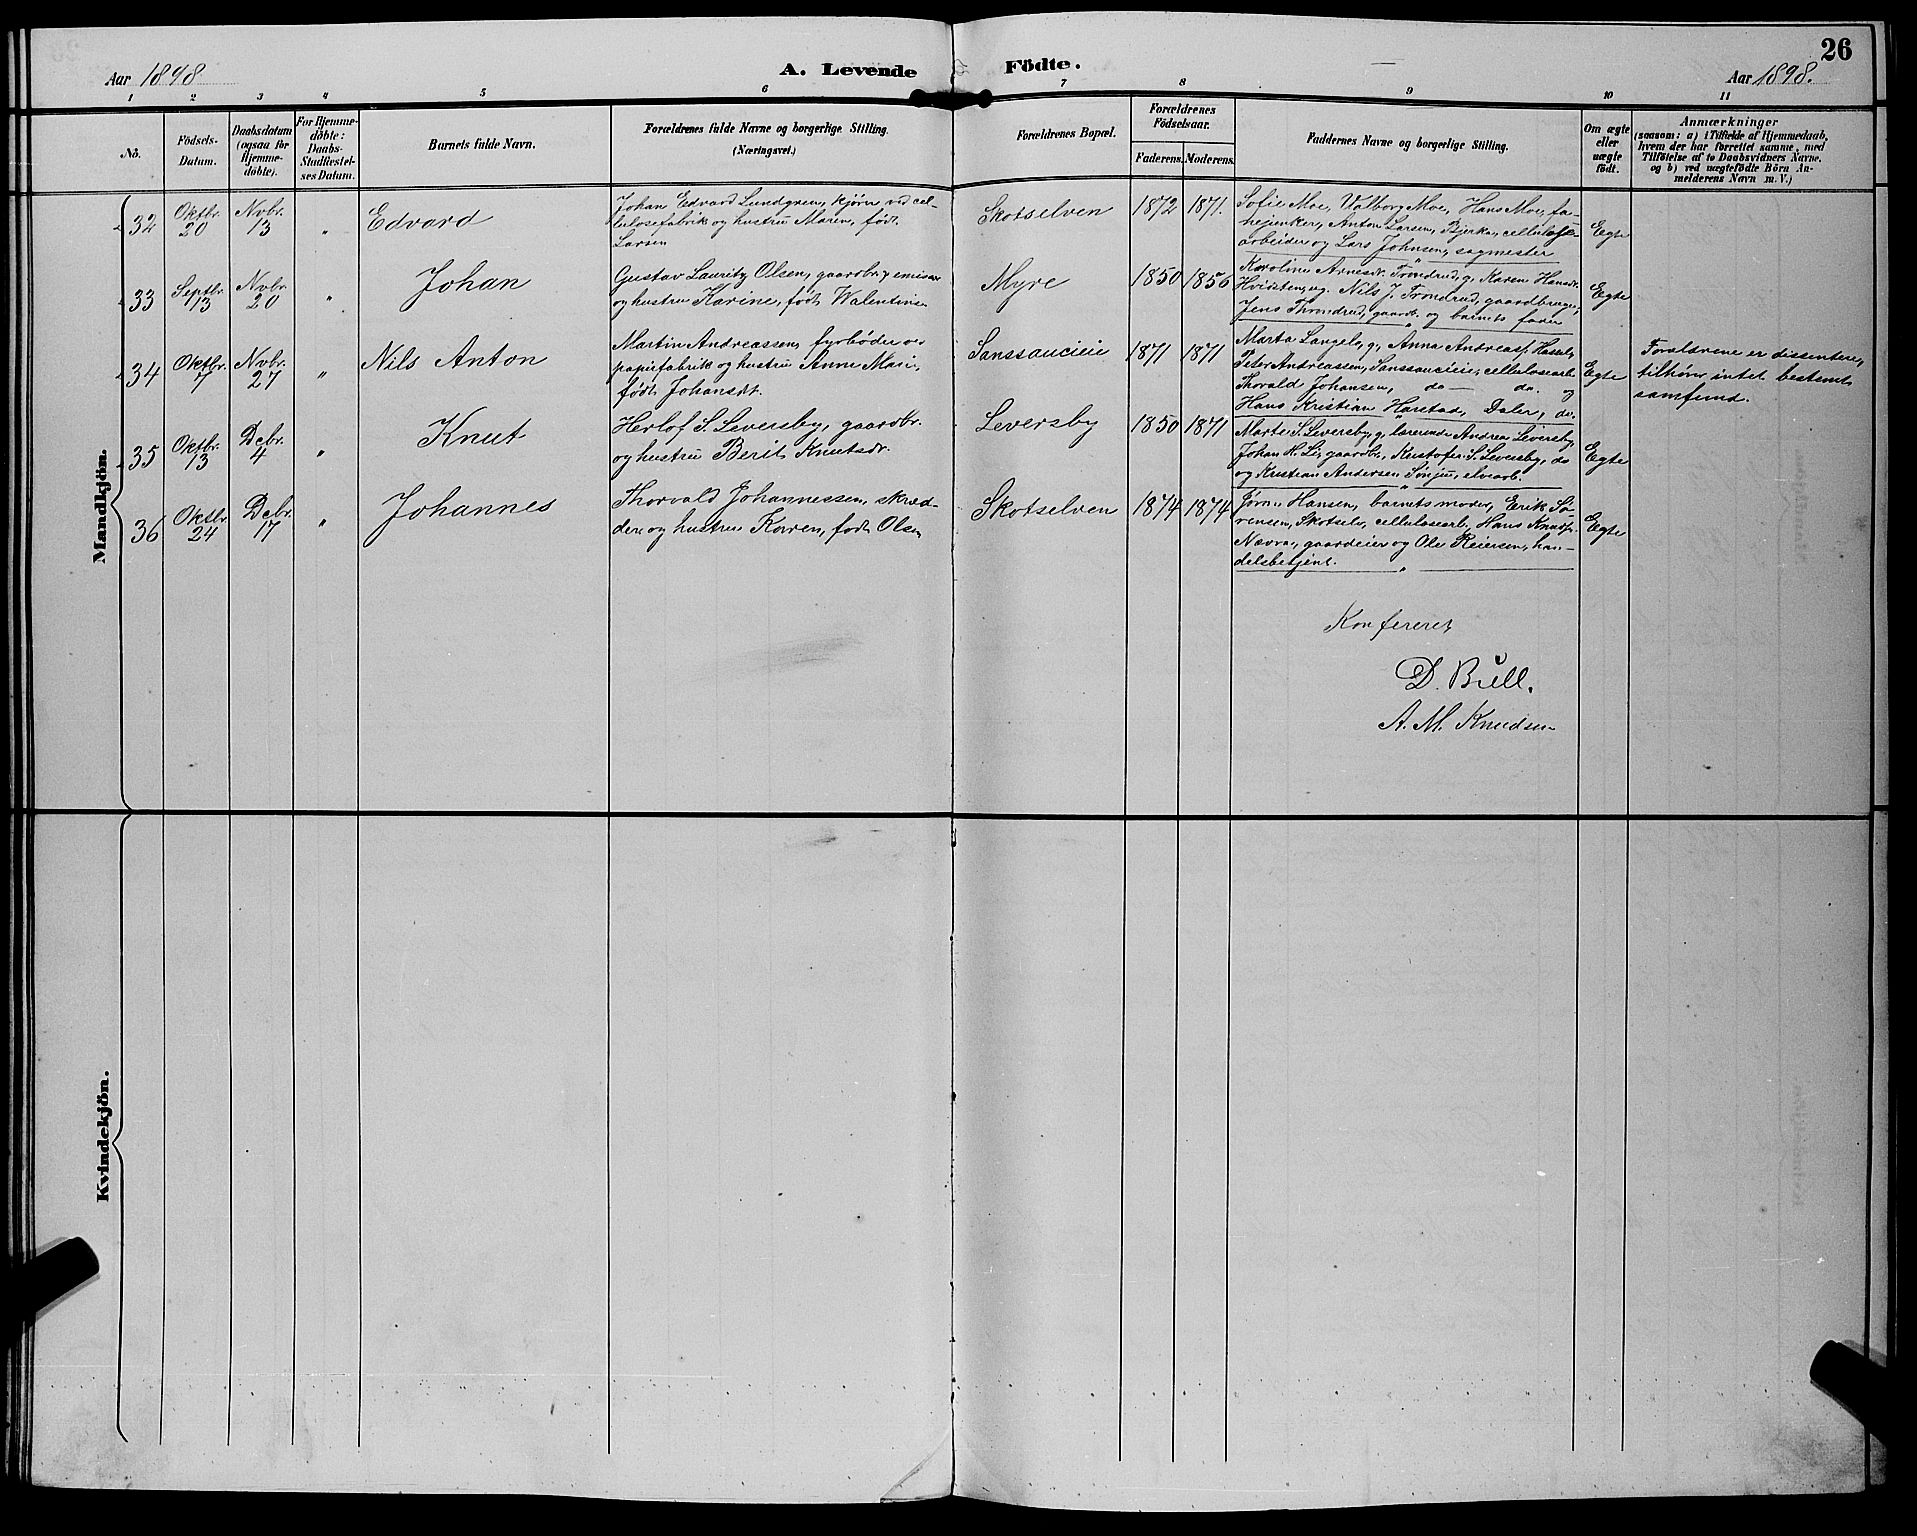 26
Aar 1898
A. Levende Födte.
Aar 1898.
1 2 3 4 5 6 7 8 9 10 11
No.
Födsels-
Datum.
Daabsdatum
(ogsaa for
Hjemme-
döbte).
For Hjemme-
döbte:
Daabs-
Stadfæstel-
ses Datum.
Barnets fulde Navn.
Forældrenes fulde Navne og borgerlige Stilling.
(Næringsvei.)
Forældrenes Bopæl.
Forældrenes
Födselsaar.
Faderens. Moderens.
Faddernes Navne og borgerlige Stilling.
Om ægte
eller
uægte
født.
Anmærkninger
(saasom: a) i Tilfælde af Hjemmedaab,
hvem der har forrettet samme, med
Tilföielse af to Daabsvidners Navne,
og b) ved uægtefödte Börn An-
melderens Navn m. V.)
Mandkjön.
32
Oktbr.
20
Nvbr.
13
"
Edvard
Johan Edvard Lundgren, kjører ved cel-
lulosefabrik og hustru Maren, født
Larsen
Skotselven
1872 1871.
Sofie Moe, Valborg Moe, Hans Moe,
Anton Larsen, Bjerka, cellulose-
arbeider og Lars Johnsen, sagmester
Egte
33
Septbr.
13
Nvbr.
20
"
Johan
Gustav Lauritz Olsen, gaardbr. og emisær
og hustru Karine, født Valentinsen
Myre
1850 1856
Karoline Arnesdr. Trondrud, g., Karen Hansdr.
Hvidsten, ug. Nils J. Trondrud, gaardbruger,
Jens Throndrud, gaardb. og barnets fader
Egte
34
Oktbr.
7
Nvbr.
27
"
Nils Anton
Martin Andreassen, fyrbøder ve
papirfabrik og hustru Anne Marie,
født Johansdt.
Sanssoucieie
1871 1871
Marta Langel, g., Anna Andreasp. Hassel,
Peter Andreassen, Sanssoucieie, cellulosearb.
Thorald Johansen, do — do. og
Hans Kristian Harstad, Daler, do.
Egte
Forældrene er dissentere,
tilhører intet bestemt
samfund.
35
Oktbr.
13
Dcbr.
4
"
Knut
Herlof S. Leversby, gaardbr.
og hustru Berit Knutsdr.
Leversby
1850 1871
Marte S. Leversby, g., lærerinde Andrea Leversby,
Johan H. Lie, gaardbr., Kristofer S. Leversby, do
og Kristian Andersen Sønju, elvearb.
Egte
36
Oktbr.
24
Dcbr.
17
"
Johannes
Thorvald Johannessen, skræd-
der og hustru Karen, født Olsen
Skotselven
1874 1874
Jørine Hansen, barnets moder, Erik Sø-
rensen, Skotselv, cellulosearb., Hans Knudsen
Nævra, gaardeier og Ole Reiersen, han-
delsbetjent.
Egte
Konfereret
D. Bull.
A. M. Knudsen
Kvindekjön.